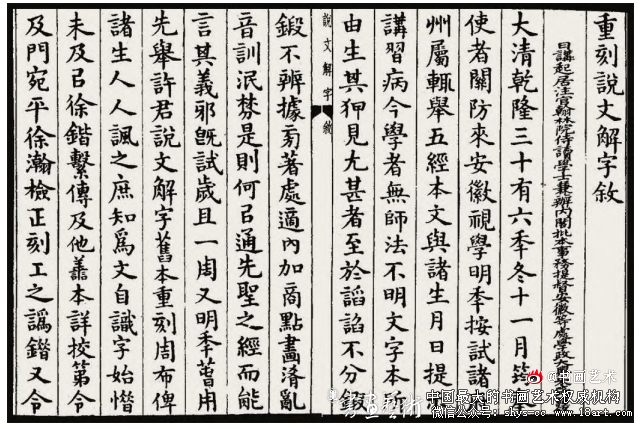 重刻說文解字敘
日講起居注官翰林院侍讀學士兼辦內閣批本事務提督安徽等處學政大
大清乾隆三十有六秊冬十一月筠
使者關防來安徽視學明秊按試諸
州屬輒舉五經本文與諸生月日提
講習病今學者無師法不明文字本所
由生其狎見尢甚者至於謟諂不分鍜
說文解字 敘
鍛不辨據旁著處適內加商點畫淆亂
音訓泯棼是則何㠯通先聖之經而能
言其義邪旣試歲且一周又明秊用
先舉許君說文解字舊本重刻周布俾
諸生人人諷之庶知爲文自識字始惜
未及㠯徐鍇繫傳及他善本詳校第令
及門宛平徐瀚檢正刻工之譌錯又令
@书画艺术
中国最大的书画艺术权威机构
微信公众号：shys-cc www.18art.com